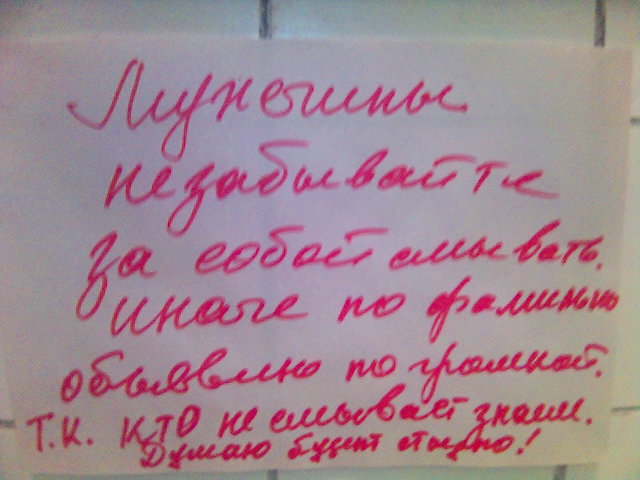 Мужчины
незабывайте
за собой смывать.
иначе по фамильно
объявлю по громкой.
Т.К. КТО не смывает знаем.
Думаю будет стыдно!